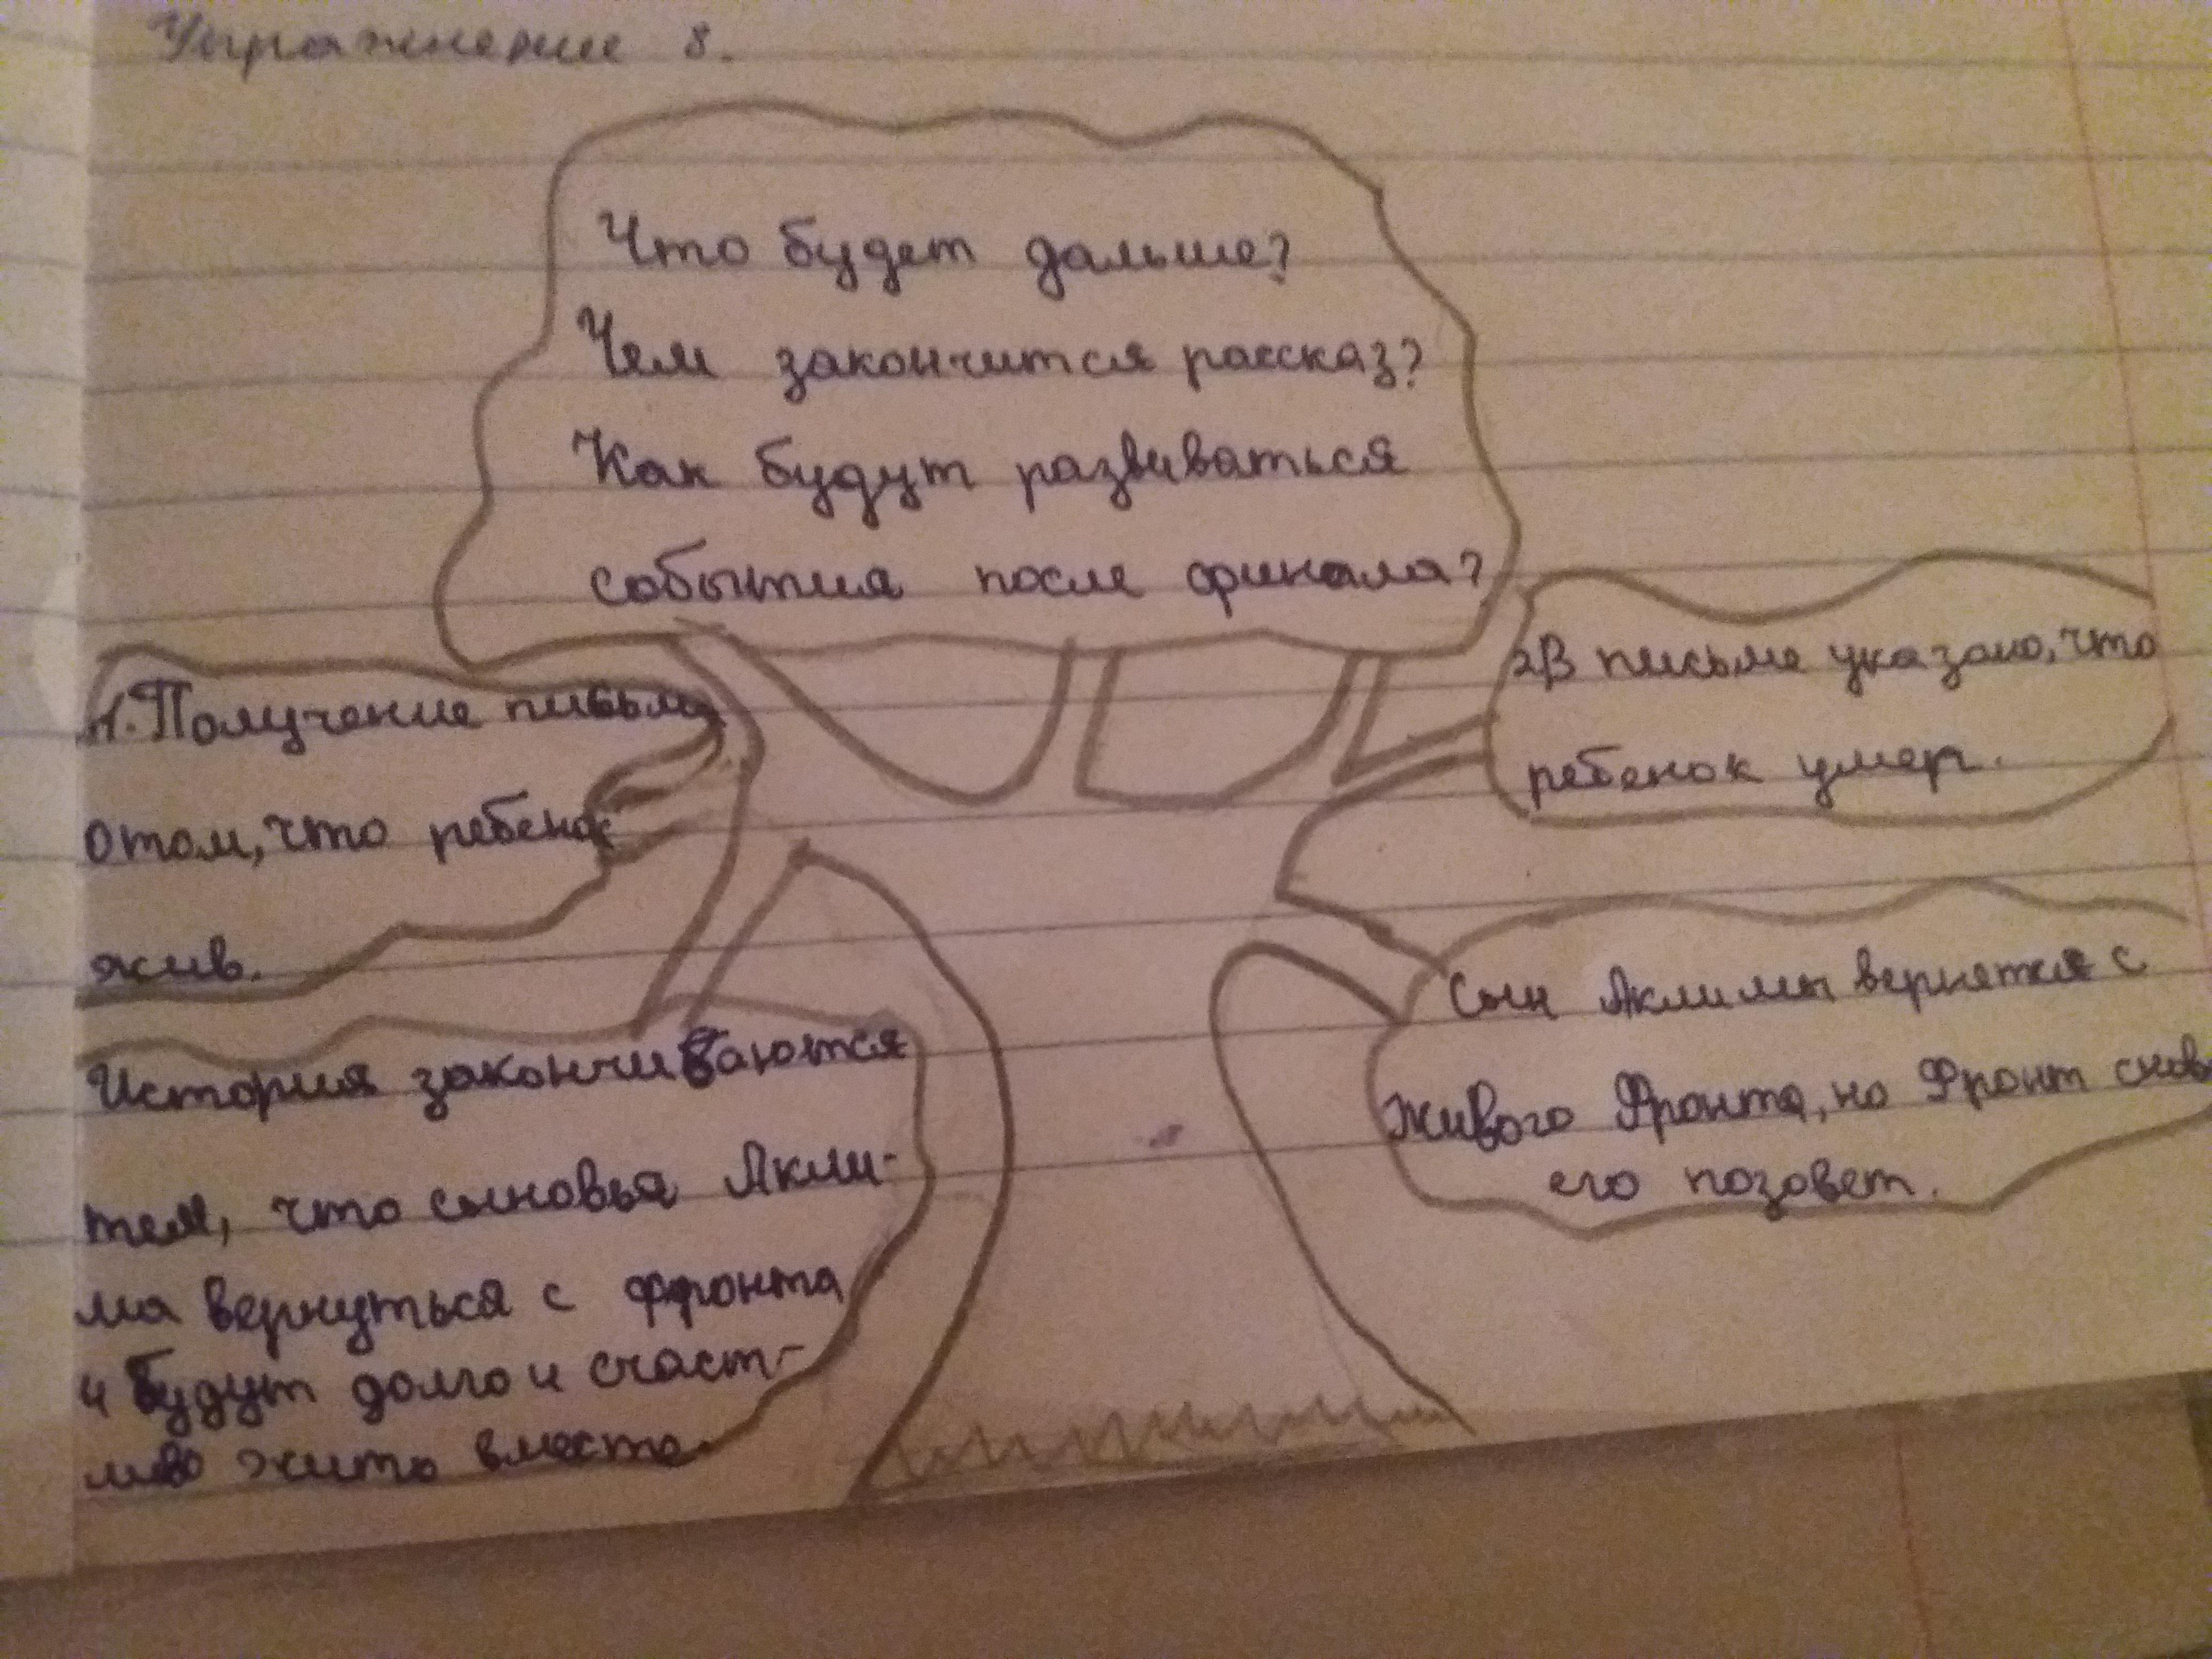 Упражнение 8.
Что будет дальше?
Чем закончится рассказ?
Как будут развиваться
события после финала?
1. Получение письма
о том, что ребенок
жив.
2В письме указано, что
ребенок умер.
История закончиваются
тем, что сыновья Акли-
ма вернуться с фронта
и будут долго и счаст-
ливо жить вместе
Сын Аклимы вернятся с
живого Фронта, но Фронт снов
его позовет.